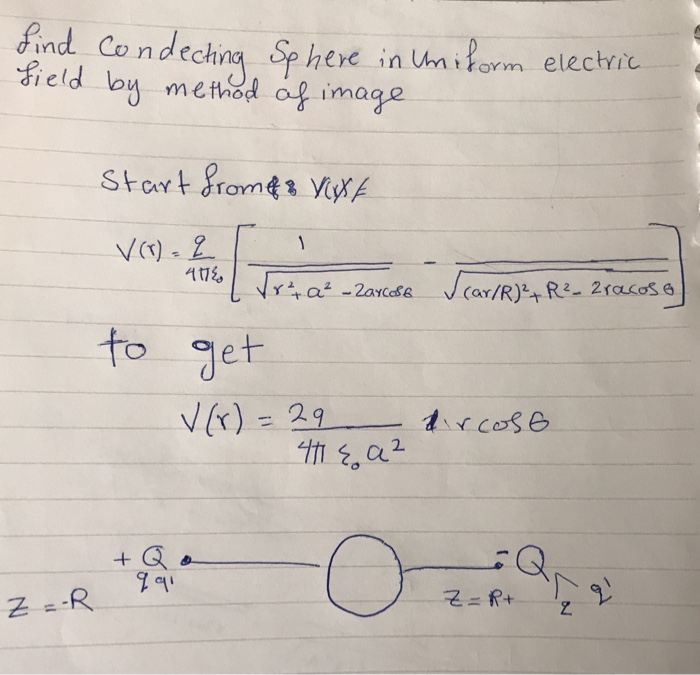 find Condecting Sphere in Uniform electric
field by method of image
Start from
V(r) = q/4πε₀ [ 1/√(r²+a²-2arcosθ) - 1/√((ar/R)²+R²-2racosθ) ]
to get
V(r) = 2q/4πε₀a² rcosθ
+Q -Q
q q' q q'
Z=-R Z=R+